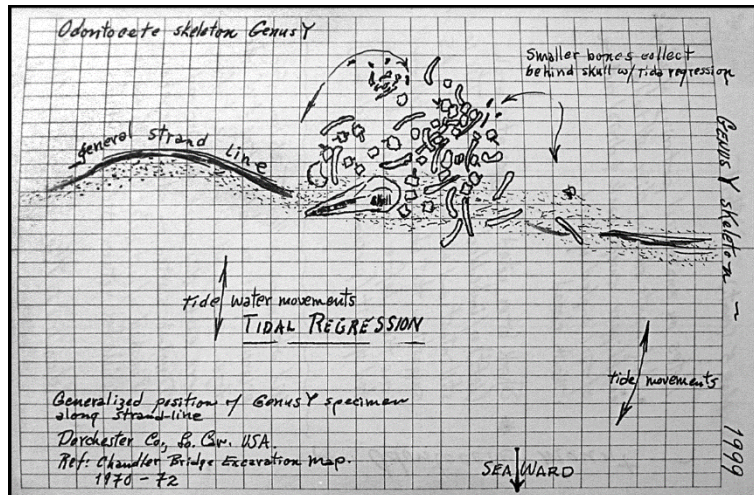 Odontocete skeleton Genus Y
Smaller bones collect
behind skull w/ tida regression
general strand line
skull
Genus Y skeleton –
tide water movements
TIDAL REGRESSION
tide movements
Generalized position of Genus Y specimen
along strand-line
Dorchester Co., So. Car. USA.
Ref: Chandler Bridge Excavation map.
1970-72
SEAWARD
1999